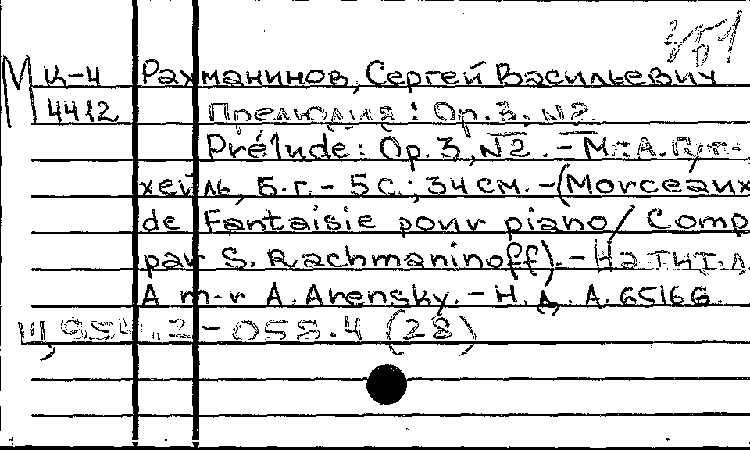 351
М ц-4 Рахманинов, Сергей Васильевич
4412 Прелюдия: Op. 3, №2
Prélude: Op. 3, №2. - М.: А. Гут-
хейль, Б.г. - 5 с.; 34 см. - (Morceaux
de Fantaisie pour piano / Comp.
par S. Rachmaninoff). - На тит. л.
A m-r A. Arensky. - Н. д. А. 6516 G
Щ 954.2-058.4 (28)